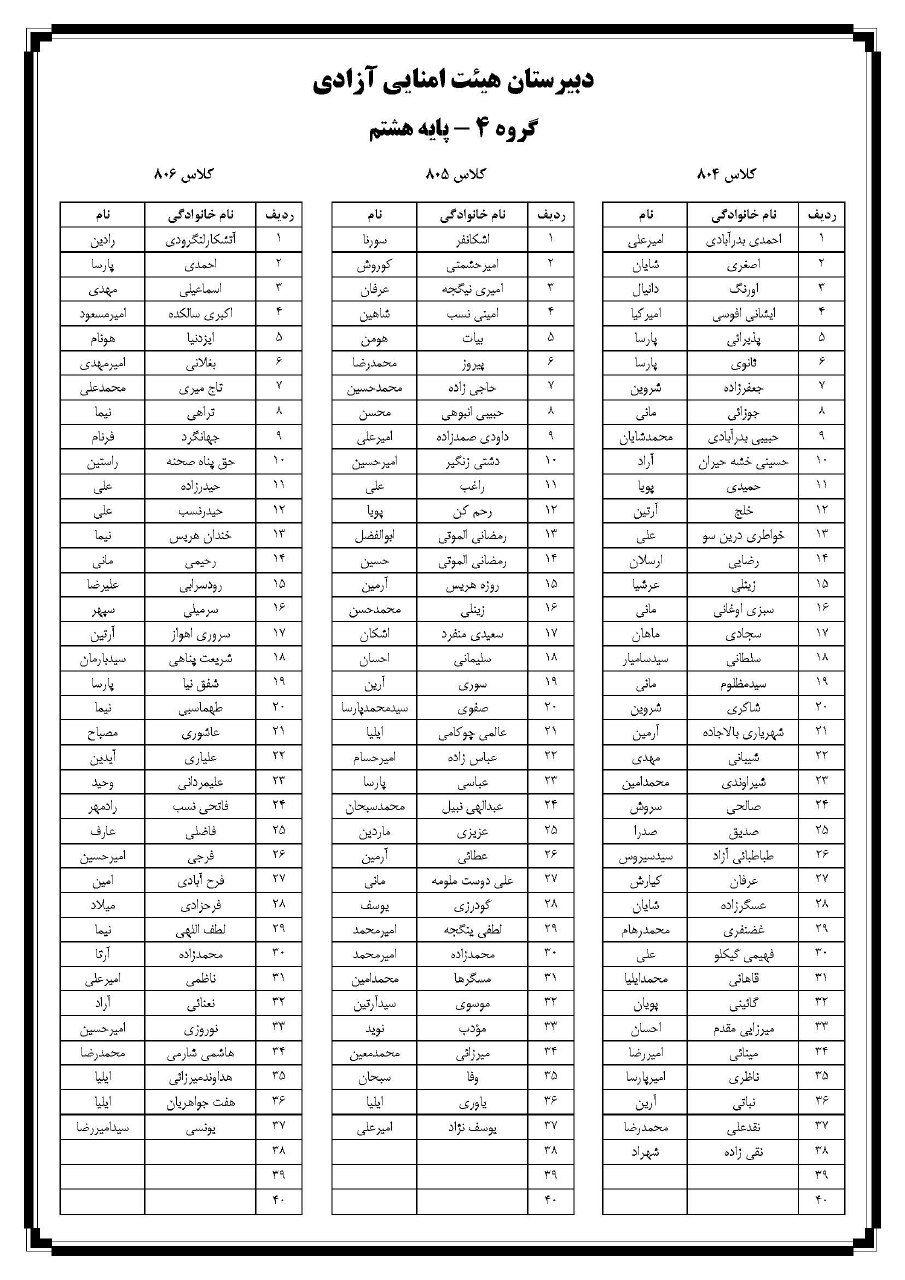 دبیرستان هیئت امنایی آزادی
گروه ۴ – پایه هشتم
کلاس ۸۰۴
ردیف نام خانوادگی نام
۱ احمدی بدرآبادی امیرعلی
۲ اصغری شایان
۳ اورنگ دانیال
۴ ایشانی افوسی امیرکیا
۵ پذیرائی پارسا
۶ ثانوی پارسا
۷ جعفرزاده شروین
۸ جوزائی مانی
۹ حبیبی بدرآبادی محمدشایان
۱۰ حسینی خشه حیران آراد
۱۱ حمیدی پویا
۱۲ خلج آرتین
۱۳ خواطری درین سو علی
۱۴ رضایی ارسلان
۱۵ زینلی عرشیا
۱۶ سبزی اوغانی مانی
۱۷ سجادی ماهان
۱۸ سلطانی سیدسامیار
۱۹ سیدمظلوم مانی
۲۰ شاکری شروین
۲۱ شهریاری بالاجاده آرمین
۲۲ شیبانی مهدی
۲۳ شیراوندی محمدامین
۲۴ صالحی سروش
۲۵ صدیق صدرا
۲۶ طباطبائی آزاد سیدسیروس
۲۷ عرفان کیارش
۲۸ عسگرزاده شایان
۲۹ غضنفری محمدرهام
۳۰ فهیمی گیکلو علی
۳۱ قاهانی محمدایلیا
۳۲ گائینی پویان
۳۳ میرزایی مقدم احسان
۳۴ مینائی امیررضا
۳۵ ناظری امیرپارسا
۳۶ نباتی آرین
۳۷ نقدعلی محمدرضا
۳۸ نقی زاده شهراد
۳۹
۴۰
کلاس ۸۰۵
ردیف نام خانوادگی نام
۱ اشکانفر سورنا
۲ امیرحشمتی کوروش
۳ امیری نیگجه عرفان
۴ امینی نسب شاهین
۵ بیات هومن
۶ پیروز محمدرضا
۷ حاجی زاده محمدحسین
۸ حبیبی انبوهی محسن
۹ داودی صمدزاده امیرعلی
۱۰ دشتی زنگیر امیرحسین
۱۱ راغب علی
۱۲ رحم کن پویا
۱۳ رمضانی الموتی ابوالفضل
۱۴ رمضانی الموتی حسین
۱۵ روزه هریس آرمین
۱۶ زینلی محمدحسن
۱۷ سعیدی منفرد اشکان
۱۸ سلیمانی احسان
۱۹ سوری آرین
۲۰ صفوی سیدمحمدپارسا
۲۱ عالمی چوکامی ایلیا
۲۲ عباس زاده امیرحسام
۲۳ عباسی پارسا
۲۴ عبدالهی نبیل محمدسبحان
۲۵ عزیزی ماردین
۲۶ عطائی آرمین
۲۷ علی دوست ملومه مانی
۲۸ گودرزی یوسف
۲۹ لطفی ینگجه امیرمحمد
۳۰ محمدزاده امیرمحمد
۳۱ مسگرها محمدامین
۳۲ موسوی سیدآرتین
۳۳ مؤدب نوید
۳۴ میرزائی محمدمعین
۳۵ وفا سبحان
۳۶ یاوری ایلیا
۳۷ یوسف نژاد امیرعلی
۳۸
۳۹
۴۰
کلاس ۸۰۶
ردیف نام خانوادگی نام
۱ آتشکارلنگرودی رادین
۲ احمدی پارسا
۳ اسماعیلی مهدی
۴ اکبری سالکده امیرمسعود
۵ ایزدنیا هونام
۶ بغلانی امیرمهدی
۷ تاج میری محمدعلی
۸ تراهی نیما
۹ جهانگرد فرنام
۱۰ حق پناه صحنه راستین
۱۱ حیدرزاده علی
۱۲ حیدرنسب علی
۱۳ خندان هریس نیما
۱۴ رحیمی مانی
۱۵ رودسرابی علیرضا
۱۶ سرمیلی سپهر
۱۷ سروری اهواز آرتین
۱۸ شریعت پناهی سیدبارمان
۱۹ شفق نیا پارسا
۲۰ طهماسبی نیما
۲۱ عاشوری مصباح
۲۲ علیاری آیدین
۲۳ علیمردانی وحید
۲۴ فاتحی نسب رادمهر
۲۵ فاضلی عارف
۲۶ فرجی امیرحسین
۲۷ فرح آبادی امین
۲۸ فرحزادی میلاد
۲۹ لطف اللهی نیما
۳۰ محمدزاده آرتا
۳۱ ناظمی امیرعلی
۳۲ نعنائی آراد
۳۳ نوروزی امیرحسین
۳۴ هاشمی شارمی محمدرضا
۳۵ هداوندمیرزائی ایلیا
۳۶ هفت جواهریان ایلیا
۳۷ یونسی سیدامیررضا
۳۸
۳۹
۴۰